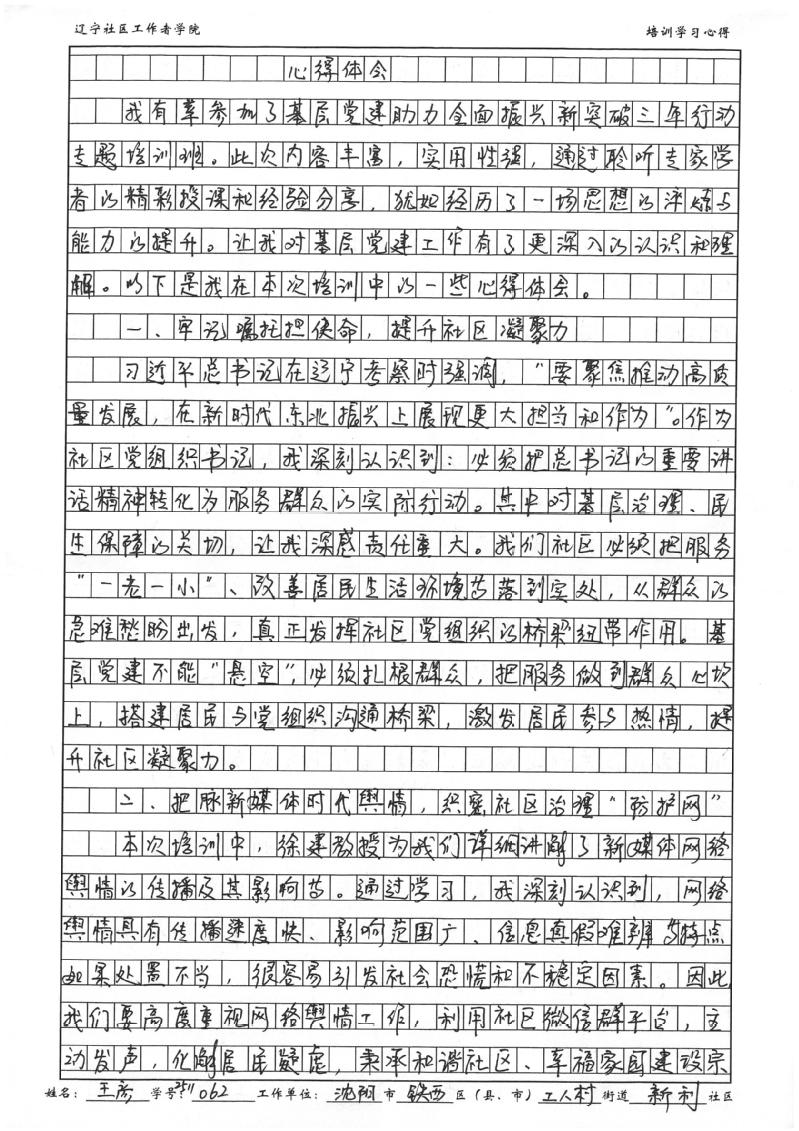 辽宁社区工作者学院 培训学习心得
心得体会
我有幸参加了基层党建助力全面振兴新突破三年行动
专题培训班。此次内容丰富，实用性强，通过聆听专家学
者的精彩授课和经验分享，犹如经历了一场思想的淬炼与
能力的提升。让我对基层党建工作有了更深入的认识和理
解。以下是我在本次培训中的一些心得体会。
一、牢记嘱托担使命，提升社区凝聚力
习近平总书记在辽宁考察时强调，“要聚焦推动高质
量发展，在新时代东北振兴上展现更大担当和作为”。作为
社区党组织书记，我深刻认识到：必须把总书记的重要讲
话精神转化为服务群众的实际行动。其中对基层治理、民
生保障的关切，让我深感责任重大。我们社区必须把服务
“一老一小”、改善居民生活环境等落到实处，从群众的
急难愁盼出发，真正发挥社区党组织的桥梁纽带作用。基
层党建不能“悬空”，必须扎根群众，把服务做到群众心坎
上，搭建居民与党组织沟通桥梁，激发居民参与热情，提
升社区凝聚力。
二、把脉新媒体时代舆情，织密社区治理“防护网”
本次培训中，徐建教授为我们详细讲解了新媒体网络
舆情的传播及其影响等。通过学习，我深刻认识到，网络
舆情具有传播速度快、影响范围广、信息真假难辨等特点
如果处置不当，很容易引发社会恐慌和不稳定因素。因此，
我们要高度重视网络舆情工作，利用社区微信群平台，主
动发声，化解居民疑虑，秉承和谐社区、幸福家园建设宗
姓名：王 学号：2511062 工作单位：沈阳市 铁西区（县、市）工人村街道 新利社区